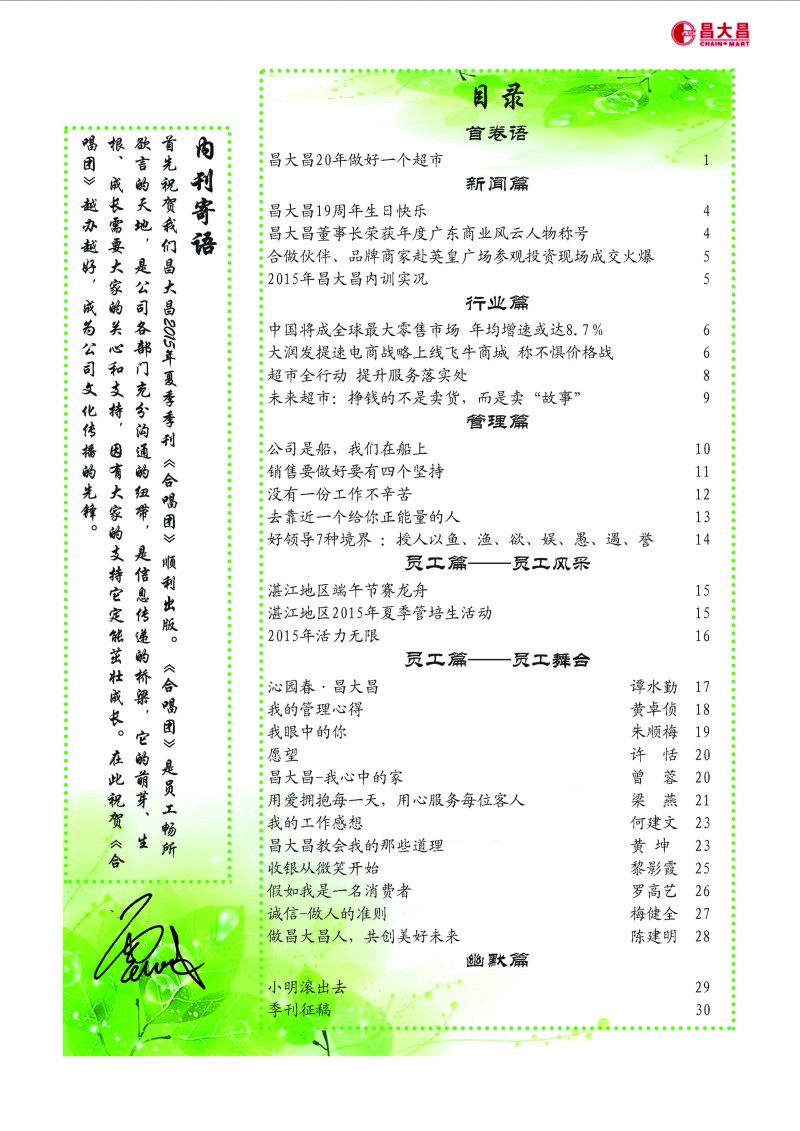 昌大昌
CHAIN★MART
内刊寄语
首先祝贺我们昌大昌2015年夏季季刊《合唱团》顺利出版。《合唱团》是员工畅所
欲言的天地，是公司各部门充分沟通的纽带，是信息传递的桥梁，它的萌芽、生
根、成长需要大家的关心和支持，因有大家的支持它定能茁壮成长。在此祝贺《合
唱团》越办越好，成为公司文化传播的先锋。
目录
首卷语
昌大昌20年做好一个超市 1
新闻篇
昌大昌19周年生日快乐 4
昌大昌董事长荣获年度广东商业风云人物称号 4
合做伙伴、品牌商家赴英皇广场参观投资现场成交火爆 5
2015年昌大昌内训实况 5
行业篇
中国将成全球最大零售市场 年均增速或达8.7% 6
大润发提速电商战略上线飞牛商城 称不惧价格战 6
超市全行动 提升服务落实处 8
未来超市：挣钱的不是卖货，而是卖“故事” 9
管理篇
公司是船，我们在船上 10
销售要做好要有四个坚持 11
没有一份工作不辛苦 12
去靠近一个给你正能量的人 13
好领导7种境界 ：授人以鱼、渔、欲、娱、愚、遇、誉 14
员工篇——员工风采
湛江地区端午节赛龙舟 15
湛江地区2015年夏季管培生活动 15
2015年活力无限 16
员工篇——员工舞台
沁园春·昌大昌 谭水勤 17
我的管理心得 黄卓侦 18
我眼中的你 朱顺梅 19
愿望 许 恬 20
昌大昌-我心中的家 曾 蓉 20
用爱拥抱每一天，用心服务每位客人 梁 燕 21
我的工作感想 何建文 23
昌大昌教会我的那些道理 黄 坤 23
收银从微笑开始 黎影霞 25
假如我是一名消费者 罗高艺 26
诚信-做人的准则 梅健全 27
做昌大昌人，共创美好未来 陈建明 28
幽默篇
小明滚出去 29
季刊征稿 30